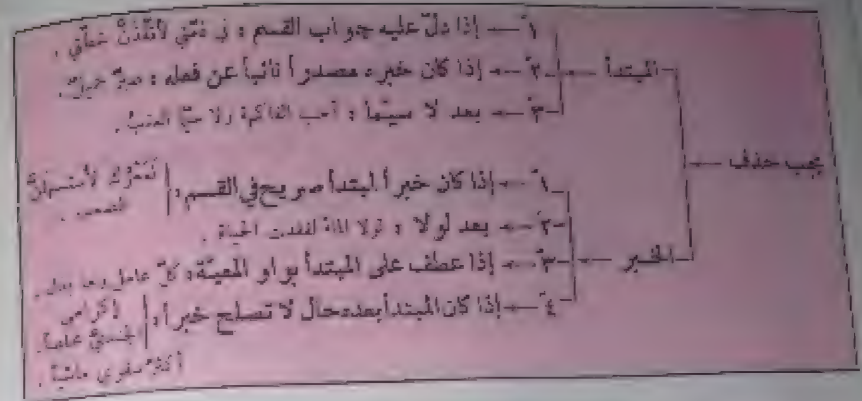 يجب حذف
المبتدأ
١ - إذا دلّ عليه جواب القسم : في ذمّتي لأنفّذنّ خطّتي .
٢ - إذا كان خبره مصدراً نائباً عن فعله : صبرٌ جميلٌ .
٣ - بعد لا سيّما : أحب الفاكهة ولا سيّما العنبُ .
الخبر
١ - إذا كان خبراً لمبتدأ صريح في القسم : لَعَمْرُك لأستسهلنّ
الصعب .
٢ - بعد لولا : لولا الماءُ لفقدت الحياة .
٣ - إذا عطف على المبتدأ بواو المعيّة : كلّ عامل وما يعمل .
٤ - إذا كان المبتدأ بعده حال لا تصلح خبراً : إكرامي
الجنديَّ
أكثرُ سفري ماشياً .